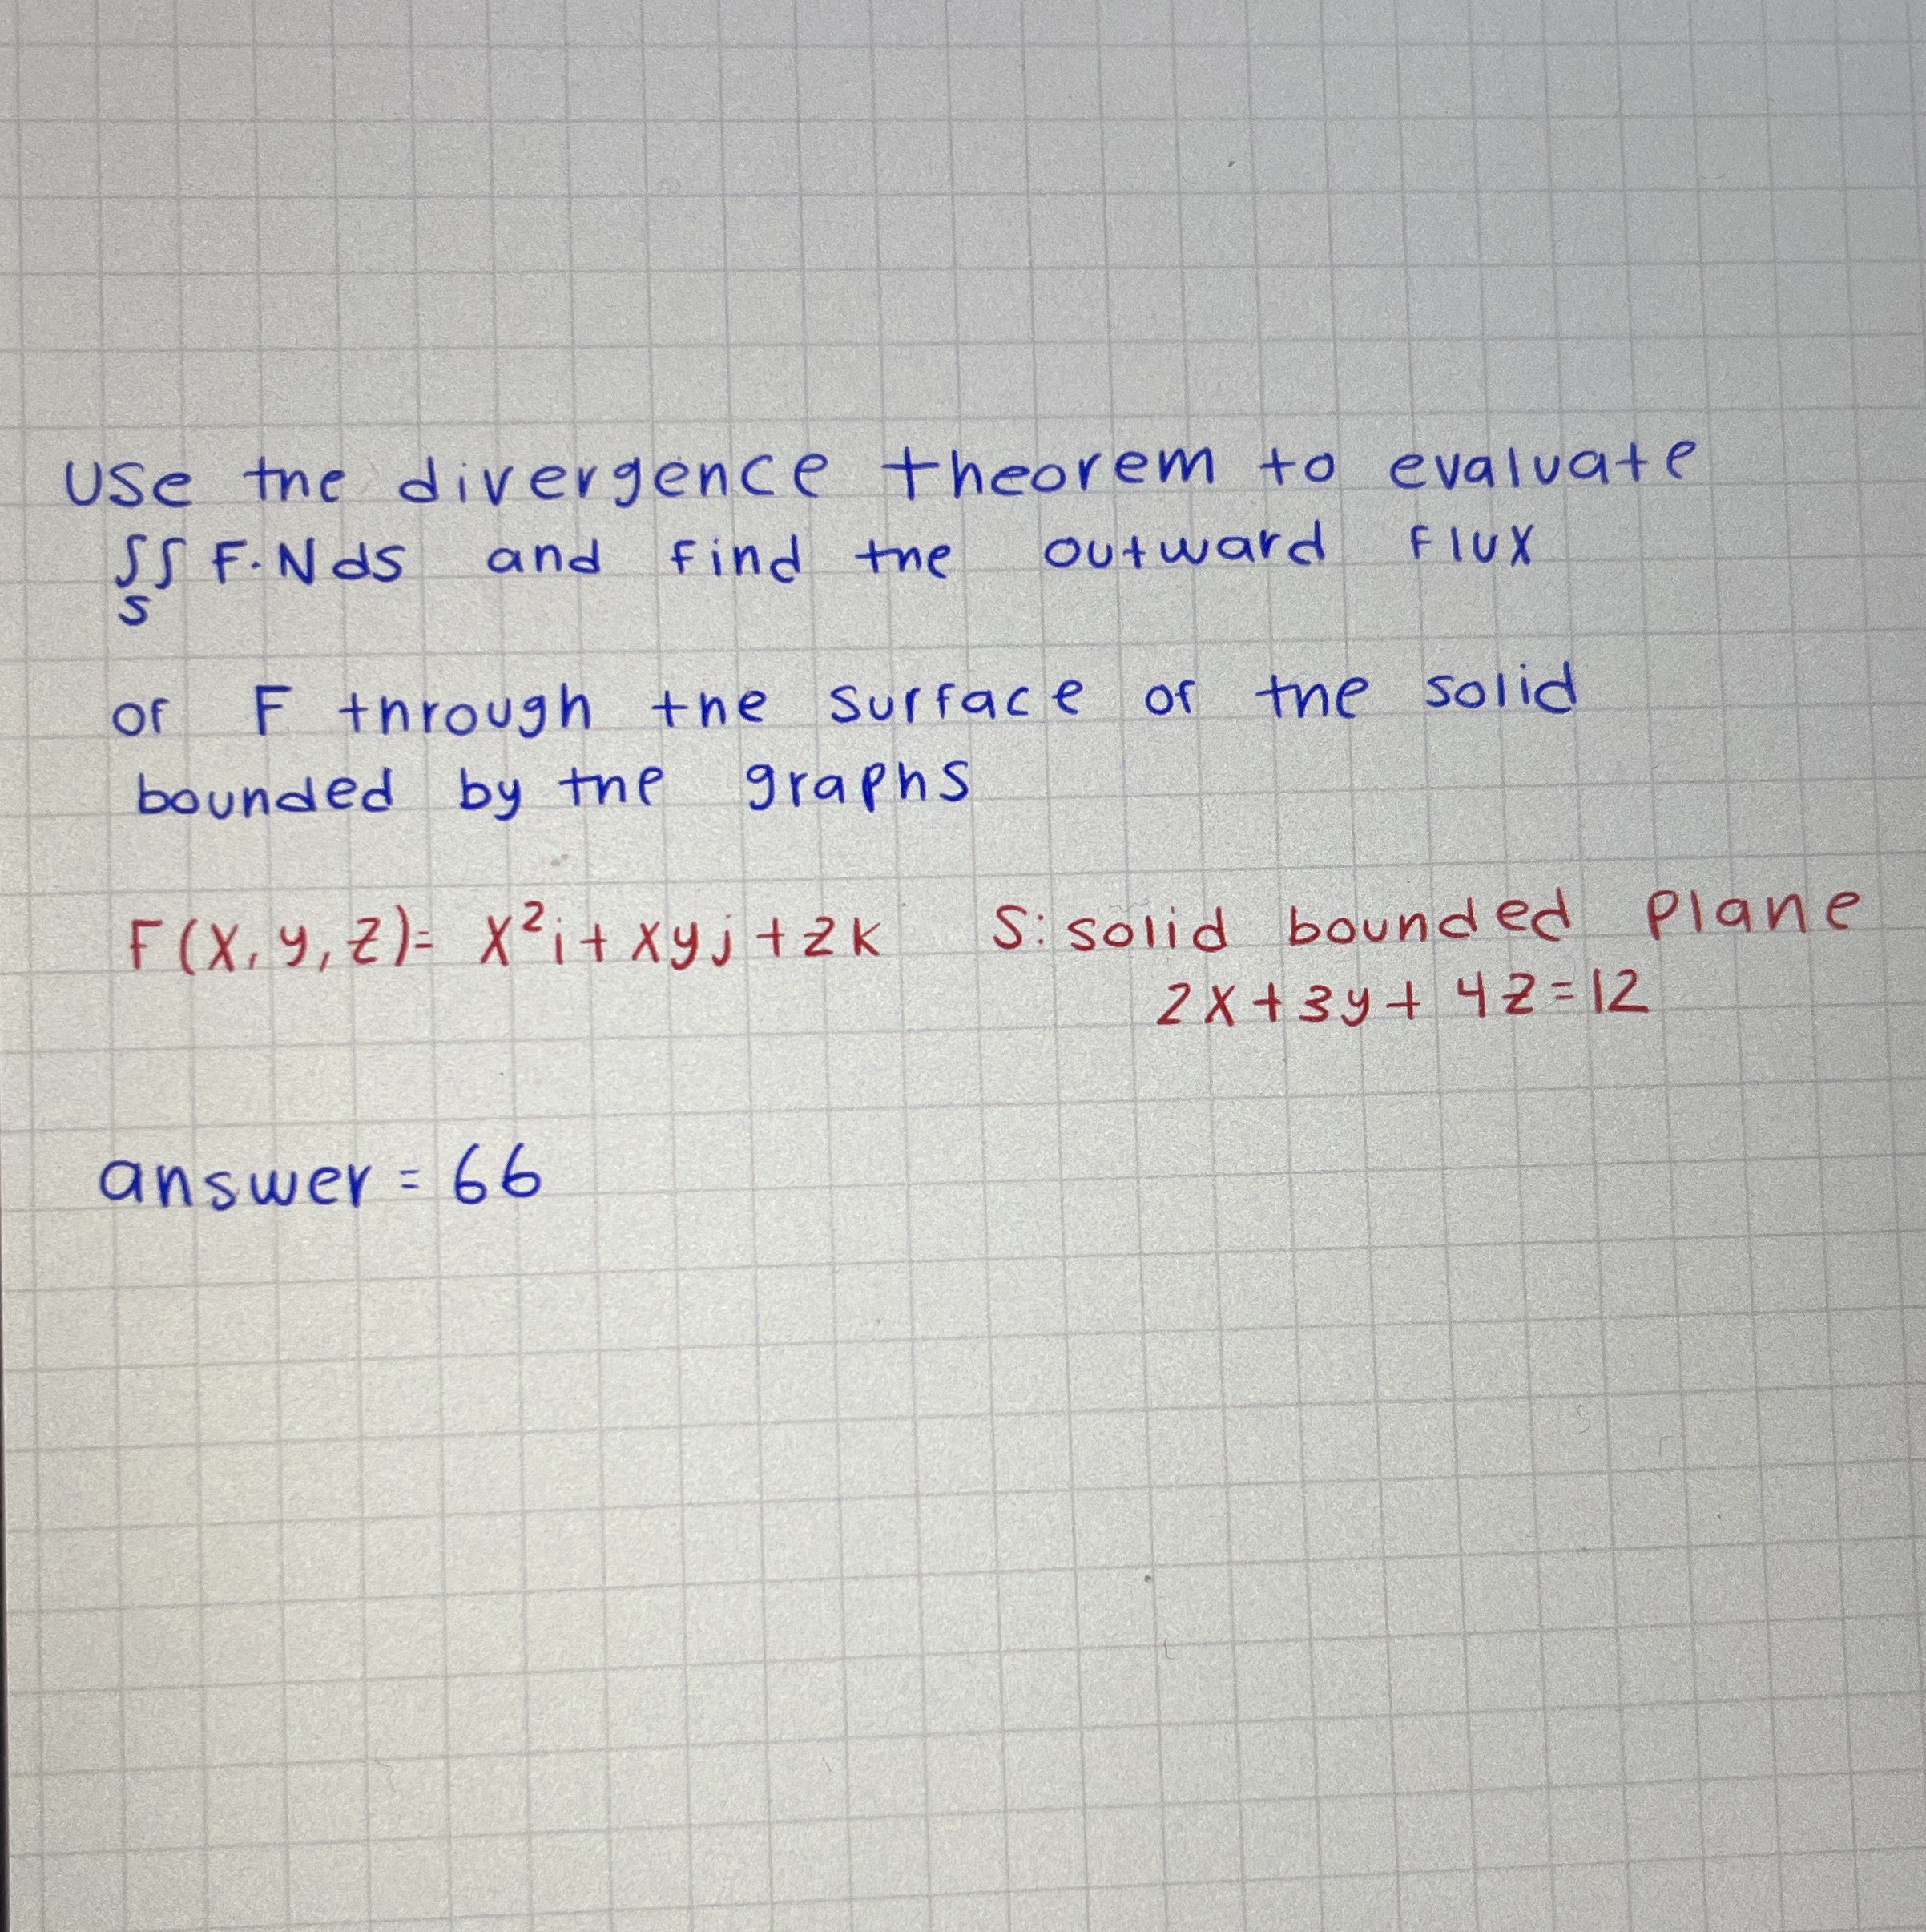 Use the divergence theorem to evaluate
∬ F·N ds and find the outward flux
S
of F through the surface of the solid
bounded by the graphs
F(x, y, z) = x²i + xyj + zk S: solid bounded plane
2x + 3y + 4z = 12
answer = 66